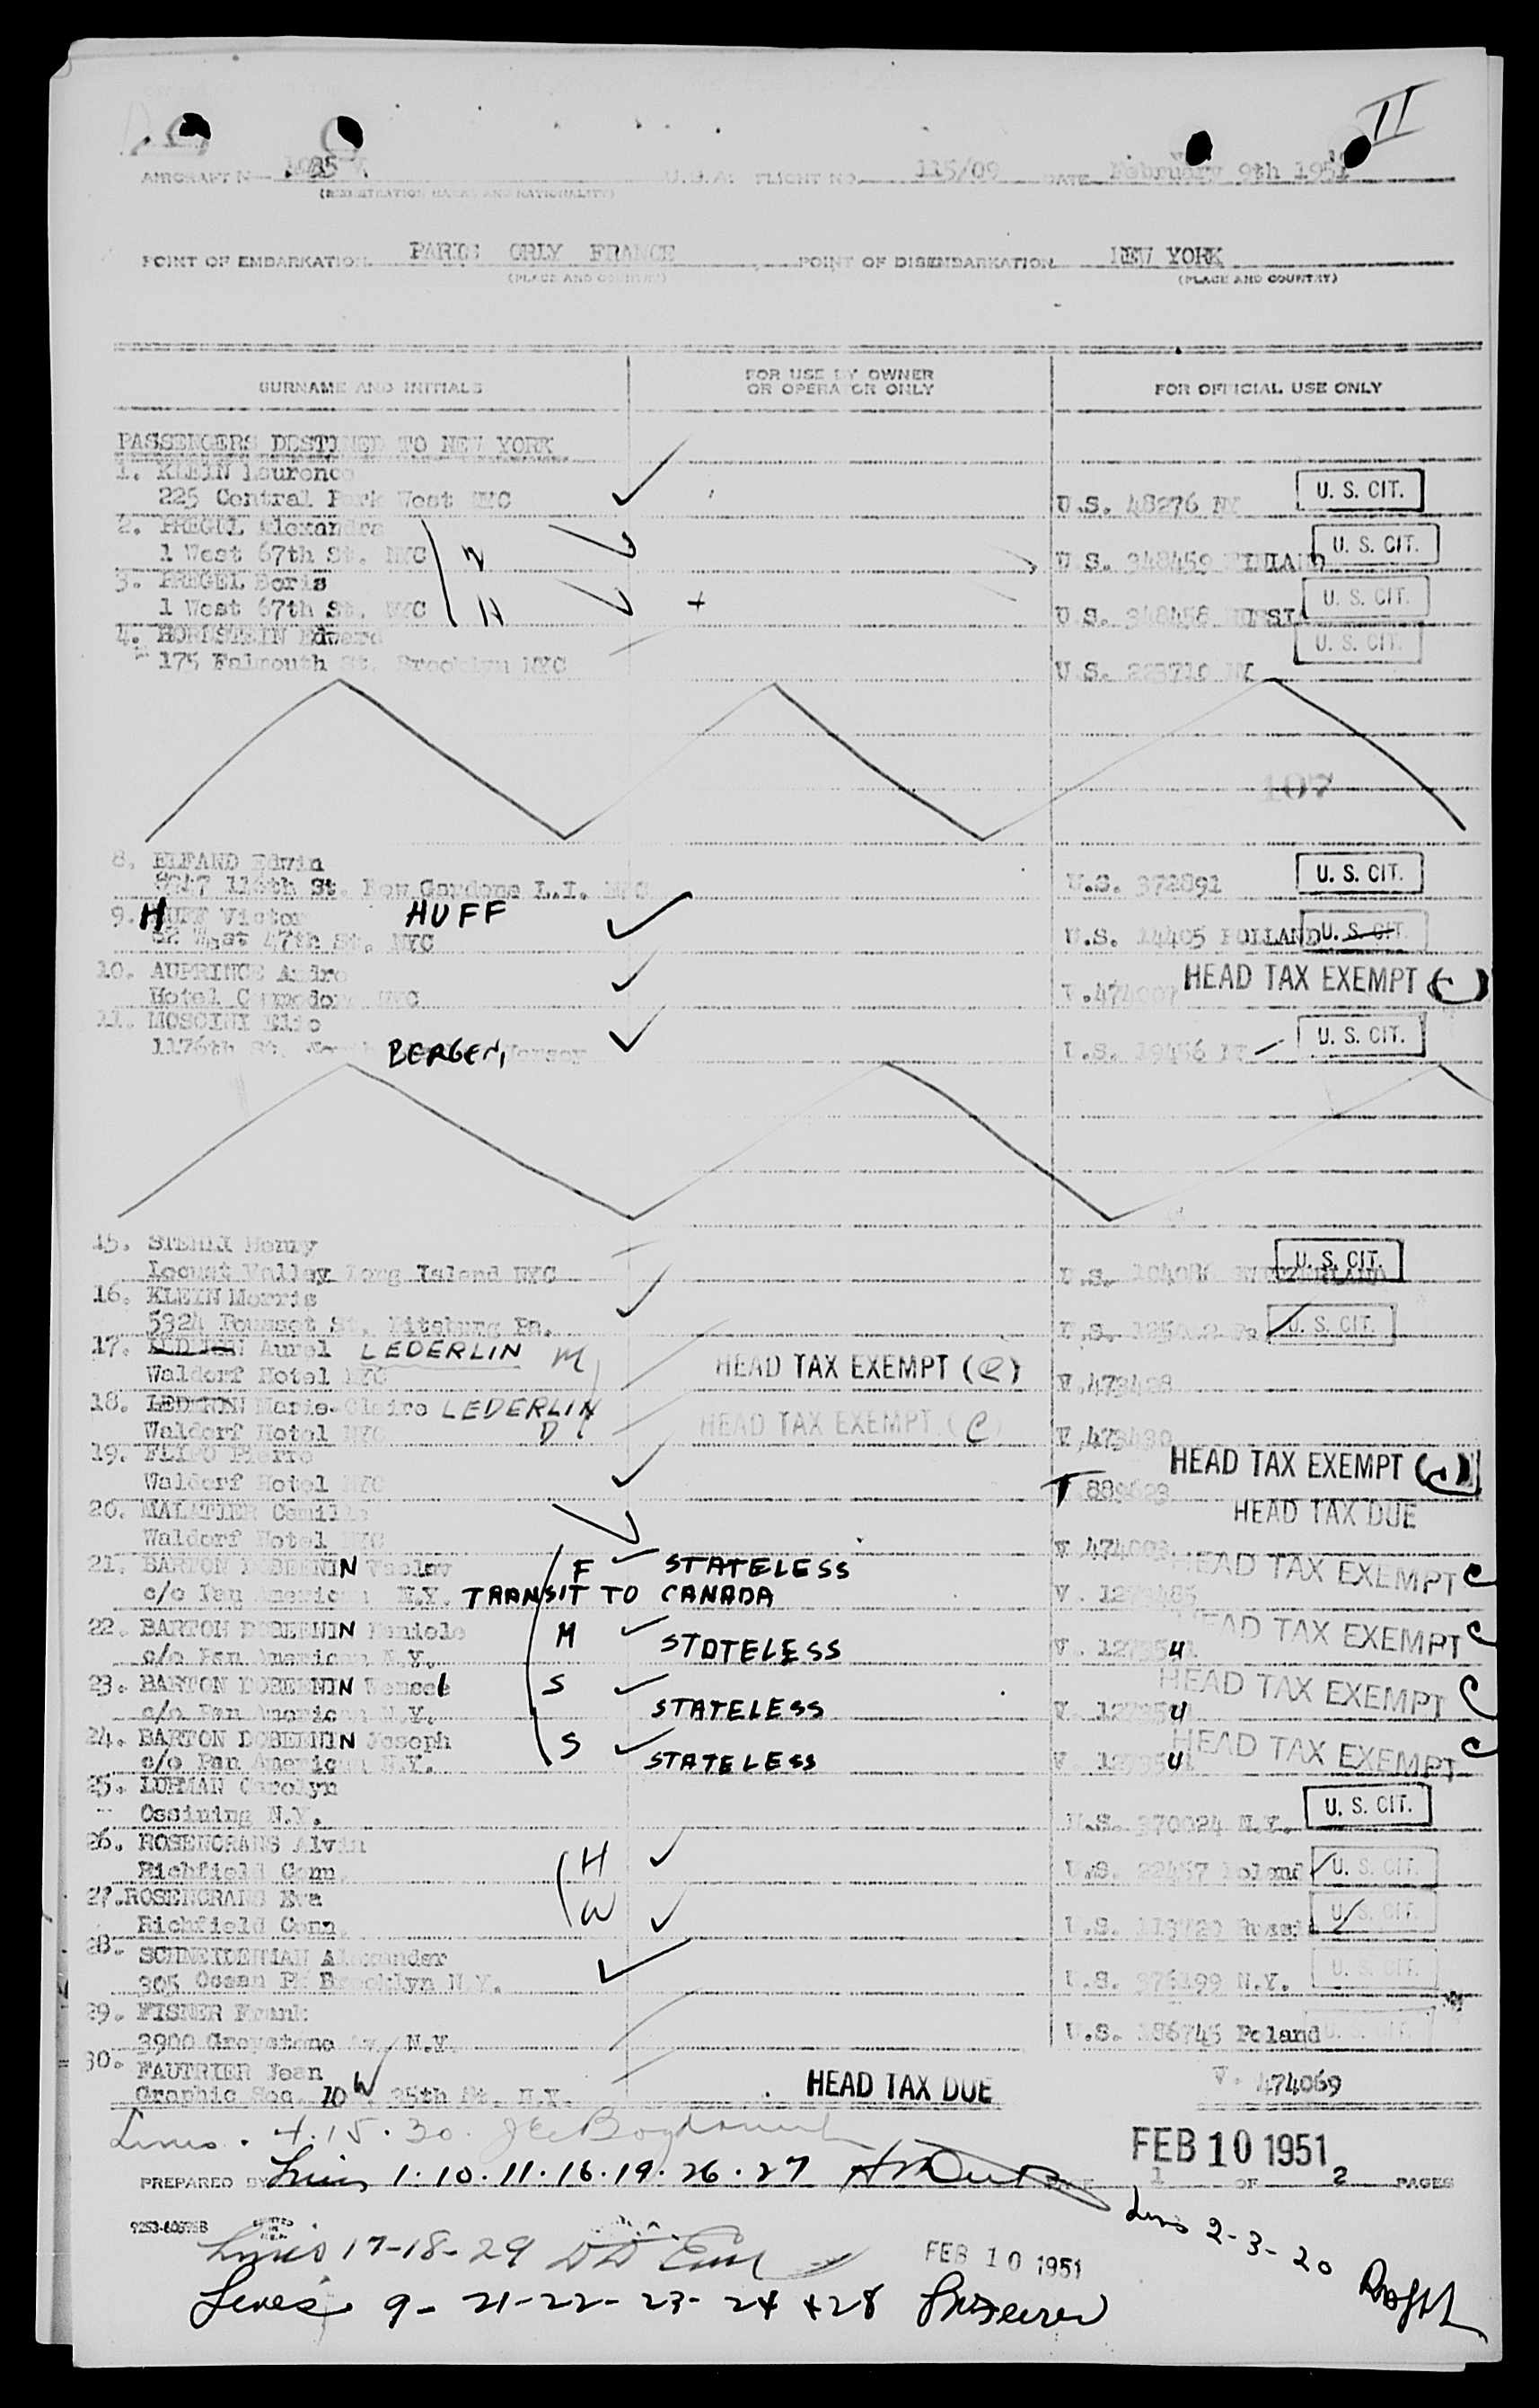 II
AIRCRAFT N 1035 V. U.S.A. FLIGHT NO. 115/09 DATE February 9th 1951
(REGISTRATION MARKS AND NATIONALITY)
POINT OF EMBARKATION PARIS ORLY FRANCE POINT OF DISEMBARKATION NEW YORK
(PLACE AND COUNTRY) (PLACE AND COUNTRY)
SURNAME AND INITIALS FOR USE BY OWNER OR OPERATOR ONLY FOR OFFICIAL USE ONLY
PASSENGERS DESTINED TO NEW YORK
1. KLEIN Laurence
225 Central Park West NYC U.S. 48276 NY U. S. CIT.
2. PREGEL Alexandra
1 West 67th St. NYC W U.S. 348459 FINLAND U. S. CIT.
3. PREGEL Boris
1 West 67th St. NYC H + U.S. 348458 RUSSIA U. S. CIT.
4. HORNSTEIN Edward
175 Falmouth St. Brooklyn NYC U.S. 223710 NY U. S. CIT.
107
8. ELFAND Edwin
116th St. Kew Gardens L.I. NYC U.S. 372891 U. S. CIT.
9. HUFF Victor HUFF
62 West 47th St. NYC U.S. 14405 POLLAND U. S. CIT.
10. AUPRINCE Andre
Hotel Commodore NYC V.474007 HEAD TAX EXEMPT (C)
11. MOSCINI Elio
1176th St. North BERGEN, Jersey U.S. 19456 U. S. CIT.
15. STEHLI Henry
Locust Valley Long Island NYC U.S. SWITZERLAND U. S. CIT.
16. KLEIN Morris
5824 St. Pitsburg Pa. U.S. Pa U. S. CIT.
17. Aurel LEDERLIN M
Waldorf Hotel NYC HEAD TAX EXEMPT (C) V.473428
18. Marie-Claire LEDERLIN
Waldorf Hotel NYC D HEAD TAX EXEMPT (C) V.473430
19. FLIPO Pierre
Waldorf Hotel NYC T 889623 HEAD TAX EXEMPT (C)
20. MALATIER Camille HEAD TAX DUE
Waldorf Hotel NYC V 474003
21. BARTON DOBENIN Vaclav F STATELESS HEAD TAX EXEMPT C
c/o Pan American N.Y. TRANSIT TO CANADA V. 1273485
22. BARTON DOBENIN Daniele M STATELESS HEAD TAX EXEMPT C
c/o Pan American N.Y. V.
23. BARTON DOBENIN Wencel S STATELESS HEAD TAX EXEMPT C
c/o Pan American N.Y. V.
24. BARTON DOBENIN Joseph S STATELESS HEAD TAX EXEMPT C
c/o Pan American N.Y. V.
25. LUHMAN Carolyn
Ossining N.Y. U.S. 370024 N.Y. U. S. CIT.
26. ROSENCRANS Alvin
Richfield Conn. H U.S. 22467 Poland U. S. CIT.
27. ROSENCRANS Eva
Richfield Conn. W U.S. 113729 Russia U. S. CIT.
28. SCHNEIDERMAN Alexander
305 Ocean Pk Brooklyn N.Y. U.S. 376199 N.Y. U. S. CIT.
29. FISNER Frank
3900 Greystone Av. N.Y. U.S. 186745 Poland U. S. CIT.
30. FAUTRIER Jean
Graphic Soc. 10 W. 25th St. N.Y. HEAD TAX DUE V. 474069
Lines. 4. 15. 30.
FEB 10 1951
PREPARED BY Lines 1. 10. 11. 16. 19. 26. 27 PAGE 1 OF 2 PAGES
Lines 2-3-20
Lines 17-18-29 FEB 10 1951
Lines 9- 21-22- 23- 24 + 28